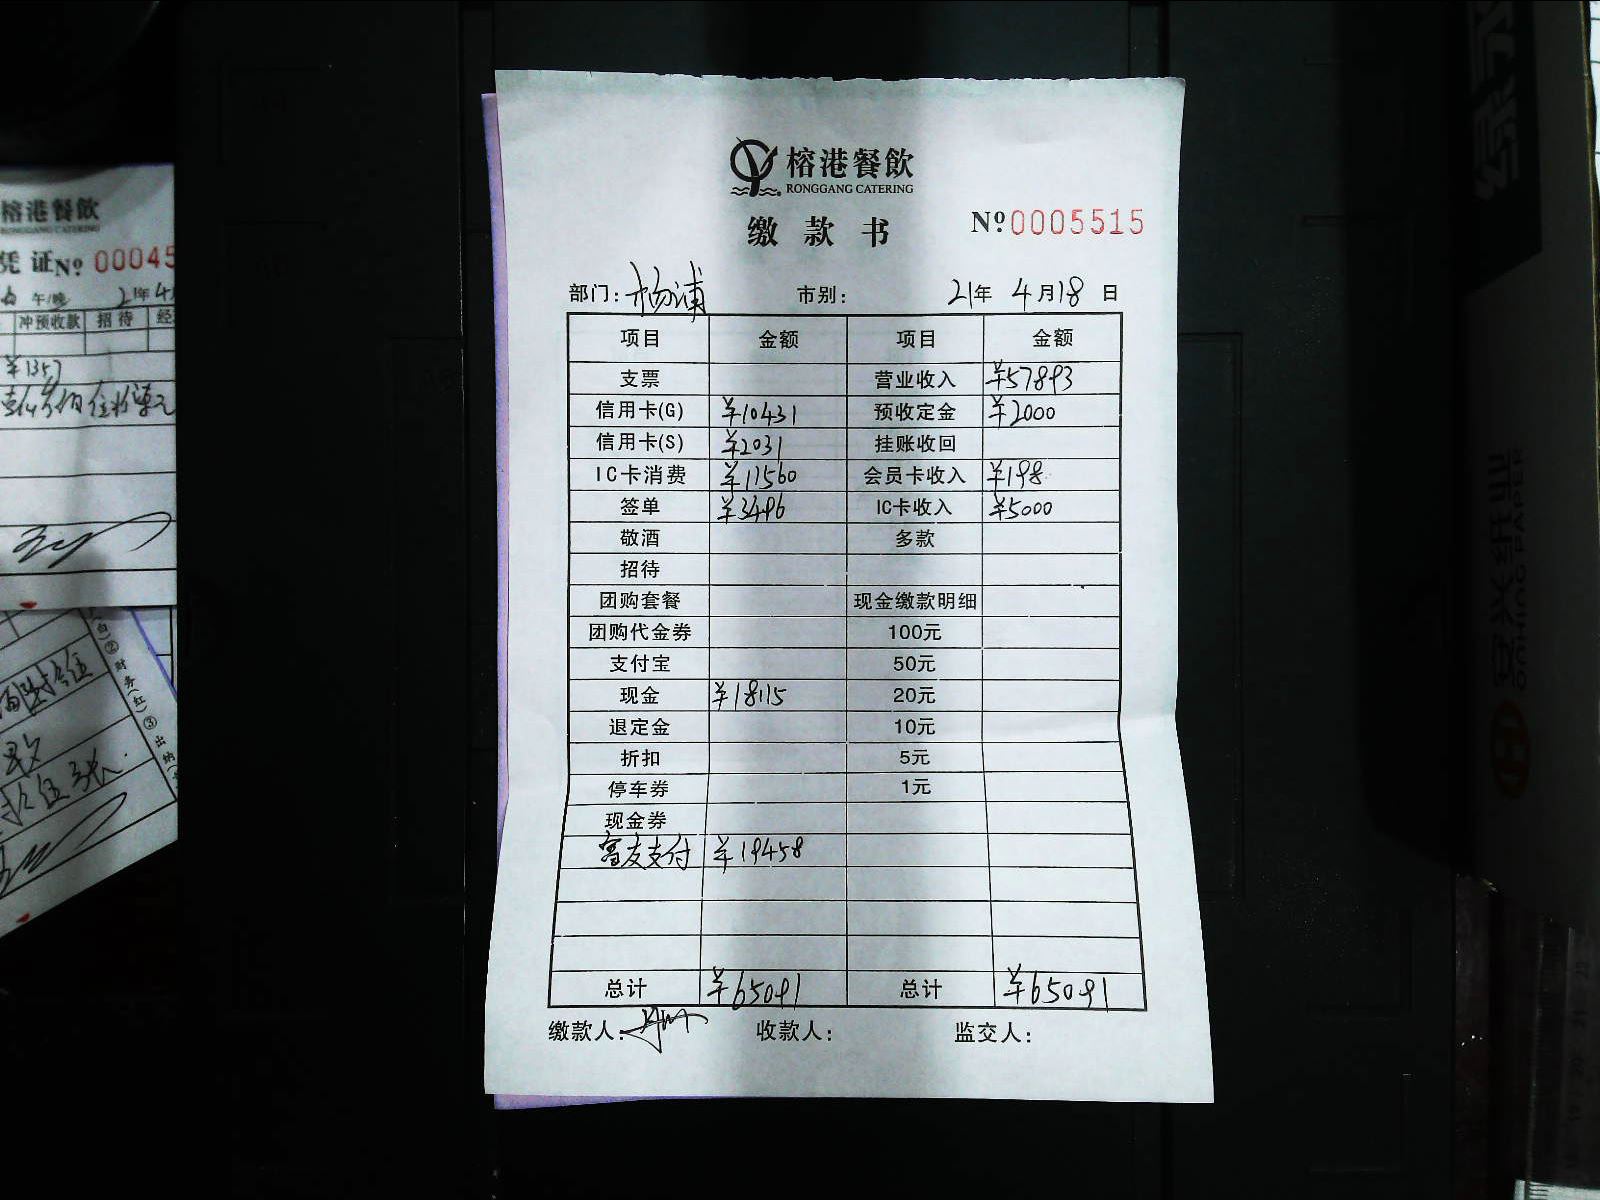 榕港餐飲
RONGGANG CATERING
缴款书
Nº 0005515
部门: 杨浦 市别: 21年 4月18日
项目 金额 项目 金额
支票 营业收入 ¥57893
信用卡(G) ¥10431 预收定金 ¥2000
信用卡(S) ¥2031 挂账收回
IC卡消费 ¥11560 会员卡收入 ¥198
签单 ¥3496 IC卡收入 ¥5000
敬酒 多款
招待
团购套餐 现金缴款明细
团购代金券 100元
支付宝 50元
现金 ¥18115 20元
退定金 10元
折扣 5元
停车券 1元
现金券
富友支付 ¥19458
总计 ¥65091 总计 ¥65091
缴款人: 收款人: 监交人:
榕港餐飲
RONGGANG CATERING
凭证 Nº 00045
午/晚 21年4
冲预收款 招待 经
¥1357
(白)②财务(红)③出纳